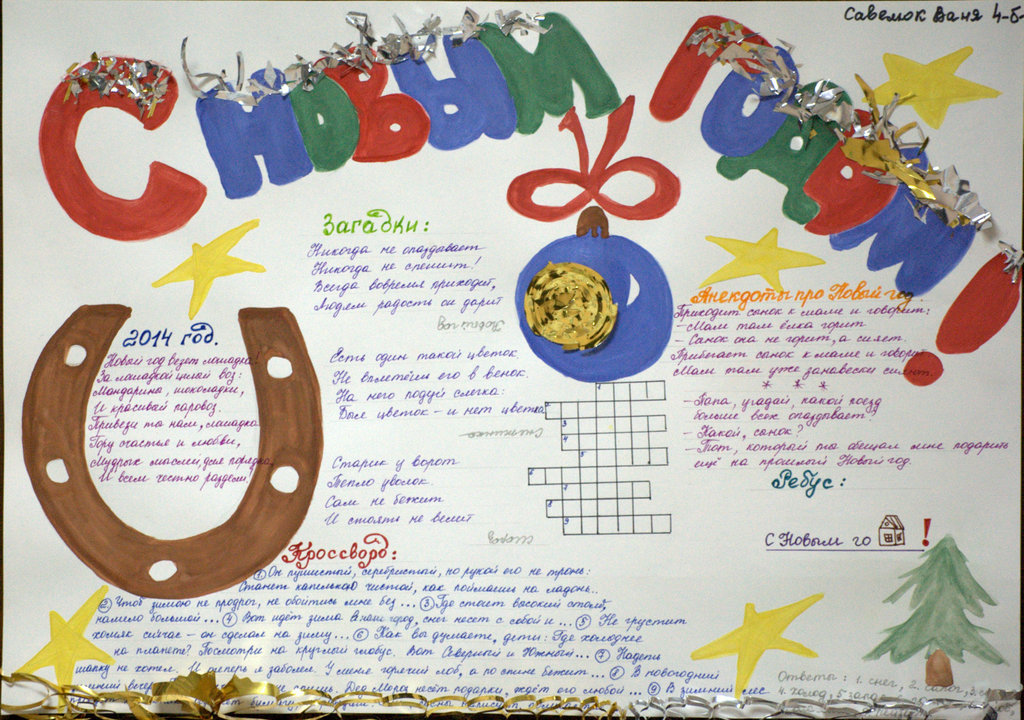 Савемок Ваня 4-Б
С Новым Годом!
Загадки:
Никогда не опаздывает
Никогда не спешит!
Всегда вовремя приходит,
Людям радость он дарит
Новый год
Есть один такой цветок
Не вплетёшь его в венок.
На него подуй слегка:
Был цветок - и нет цветка
Снежинка
Старик у ворот
Тепло уволок.
Сам не бежит
И стоять не велит
Мороз
2014 год.
Новый год везет лошадка!
За лошадкой целый воз:
Мандарины, шоколадки,
И красивый паровоз.
Привези ты нам, лошадка
Гору счастья и любви,
Мудрых мыслей, для порядка,
И всем честно раздели!
Анекдоты про Новый год.
Приходит сынок к маме и говорит:
- Мам там ёлка горит
- Сынок она не горит, а сияет.
Прибегает сынок к маме и говорит
Мам там уже занавески сияют.
* * *
- Папа, угадай, какой поезд
больше всех опаздывает?
- Какой, сынок?
- Тот, который ты обещал мне подарить
ещё на прошлый Новый год
Ребус:
С Новым го !
Кроссворд:
1 Он пушистый, серебристый, но рукой его не тронь:
Станет капелькою чистой, как поймаешь на ладонь..
2 Чтоб зимою не продрог, не обойтись мне без ... 3 Где стоит высокий столб,
намело большой ... 4 Вот идёт зима в наш город, снег несет с собой и ... 5 Не грустит
хомяк сейчас - он сделал на зиму... 6 Как вы думаете, дети: Где холоднее
на планете? Посмотри на круглый глобус. Вот Северный и Южный... 7 Надеть
шапку не хотел. И теперь я заболел. У меня горячий лоб, а по спине бежит... 8 В новогодний
зимний вечер Дед Мороз несёт подарки, ждёт его любой ... 9 В зимний лес
Ответы: 1. снег, 2. сапог,
4. холод, 5 запас